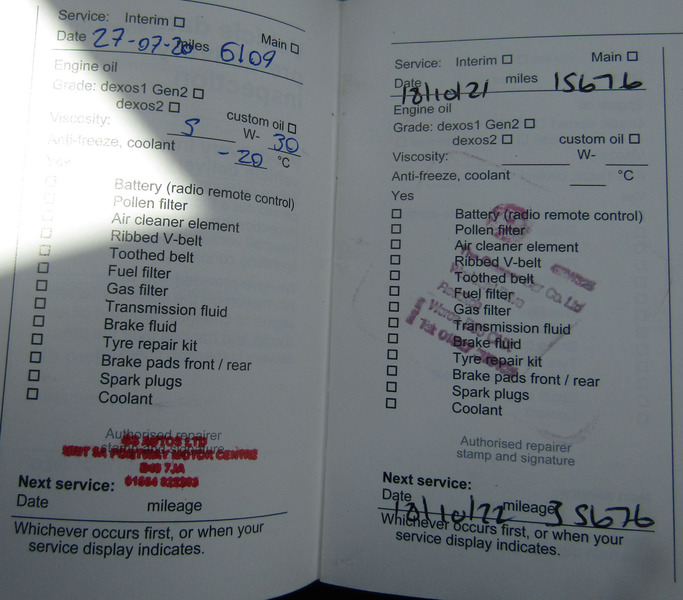 Service: Interim
Main
Date 27-07-20 miles 6109
Engine oil
Grade: dexos1 Gen2
dexos2
custom oil
Viscosity: 5 W- 30
Anti-freeze, coolant -20 °C
Yes
Battery (radio remote control)
Pollen filter
Air cleaner element
Ribbed V-belt
Toothed belt
Fuel filter
Gas filter
Transmission fluid
Brake fluid
Tyre repair kit
Brake pads front / rear
Spark plugs
Coolant
Authorised repairer
stamp and signature
AUTOS LTD
UNIT 5A PORTWAY MOTOR CENTRE
7JA
Next service:
Date mileage
Whichever occurs first, or when your
service display indicates.
Service: Interim Main
Date 18/10/21 miles 15676
Engine oil
Grade: dexos1 Gen2
dexos2 custom oil
Viscosity: W-
Anti-freeze, coolant °C
Yes
Battery (radio remote control)
Pollen filter
Air cleaner element
Ribbed V-belt
Toothed belt
Fuel filter
Gas filter
Transmission fluid
Brake fluid
Tyre repair kit
Brake pads front / rear
Spark plugs
Coolant
Co. Ltd
Authorised repairer
stamp and signature
Next service:
Date 18/10/22 mileage 35676
Whichever occurs first, or when your
service display indicates.